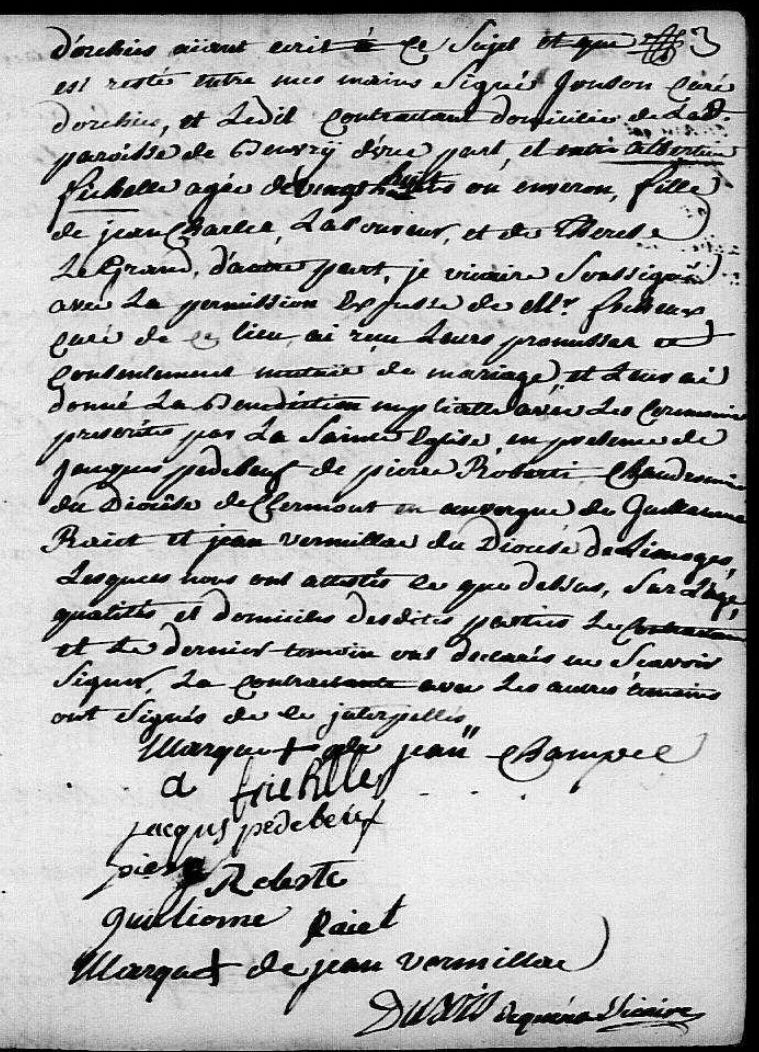 d'orchies aïant ecrit à ce Sujet et qui 3
est resté entre mes mains Signé Jonson Curé
d'orchies, et Ledit Contractant domicilié de Lad.
paroisse de Beuvrÿ d'une part, et entre albertine
fichelle agée de vingt huit ans ou environ, fille
de jean Charles, Laboureur, et de Therese
Le Grand, d'autre part, je vicaire Soussigné
avec La permission Expresse de Mr.
curé de ce lieu, ai reçu Leurs promesses et
Consentement mutuel de mariage, et Leurs ai
donné La Benediction nuptialle avec Les Ceremonies
prescrites par La Sainte Eglise, en presence de
jacques pedebeuf de pierre Roberti Chaudronnier
du Diocèse de Clermont en auvergne de Guillaume
Raiet et jean vermillac du Diocése de Limoges,
Lesquels nous ont attestés ce que dessus, Sur L'age,
qualités et domiciles desdites parties Le Contractant
et Le dernier temoin ont declarés ne Scavoir
Signer, La contractante avec Les autres temoins
ont Signés de ce interpellés
Marque + de jean Champeil
a fichelle
jacqus pedebeuf
pierre Roberte
guilliome Raiet
Marque + de jean vermillac
Vicaire